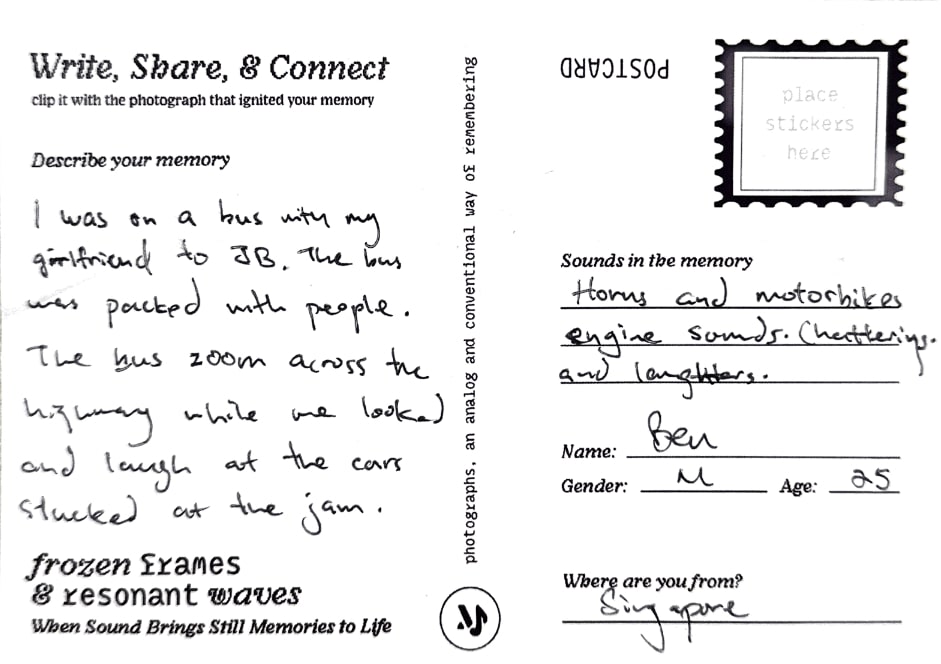 Write, Share, & Connect
clip it with the photograph that ignited your memory
Describe your memory
I was on a bus with my
girlfriend to JB. The bus
was packed with people.
The bus zoom across the
highway while we looked
and laugh at the cars
stucked at the jam.
frozen frames
& resonant waves
When Sound Brings Still Memories to Life
photographs, an analog and conventional way of remembering
POSTCARD
place
stickers
here
Sounds in the memory
Horns and motorbikes
engine sounds. Chatterings.
and laughters.
Name: Ben
Gender: M Age: 25
Where are you from?
Singapore